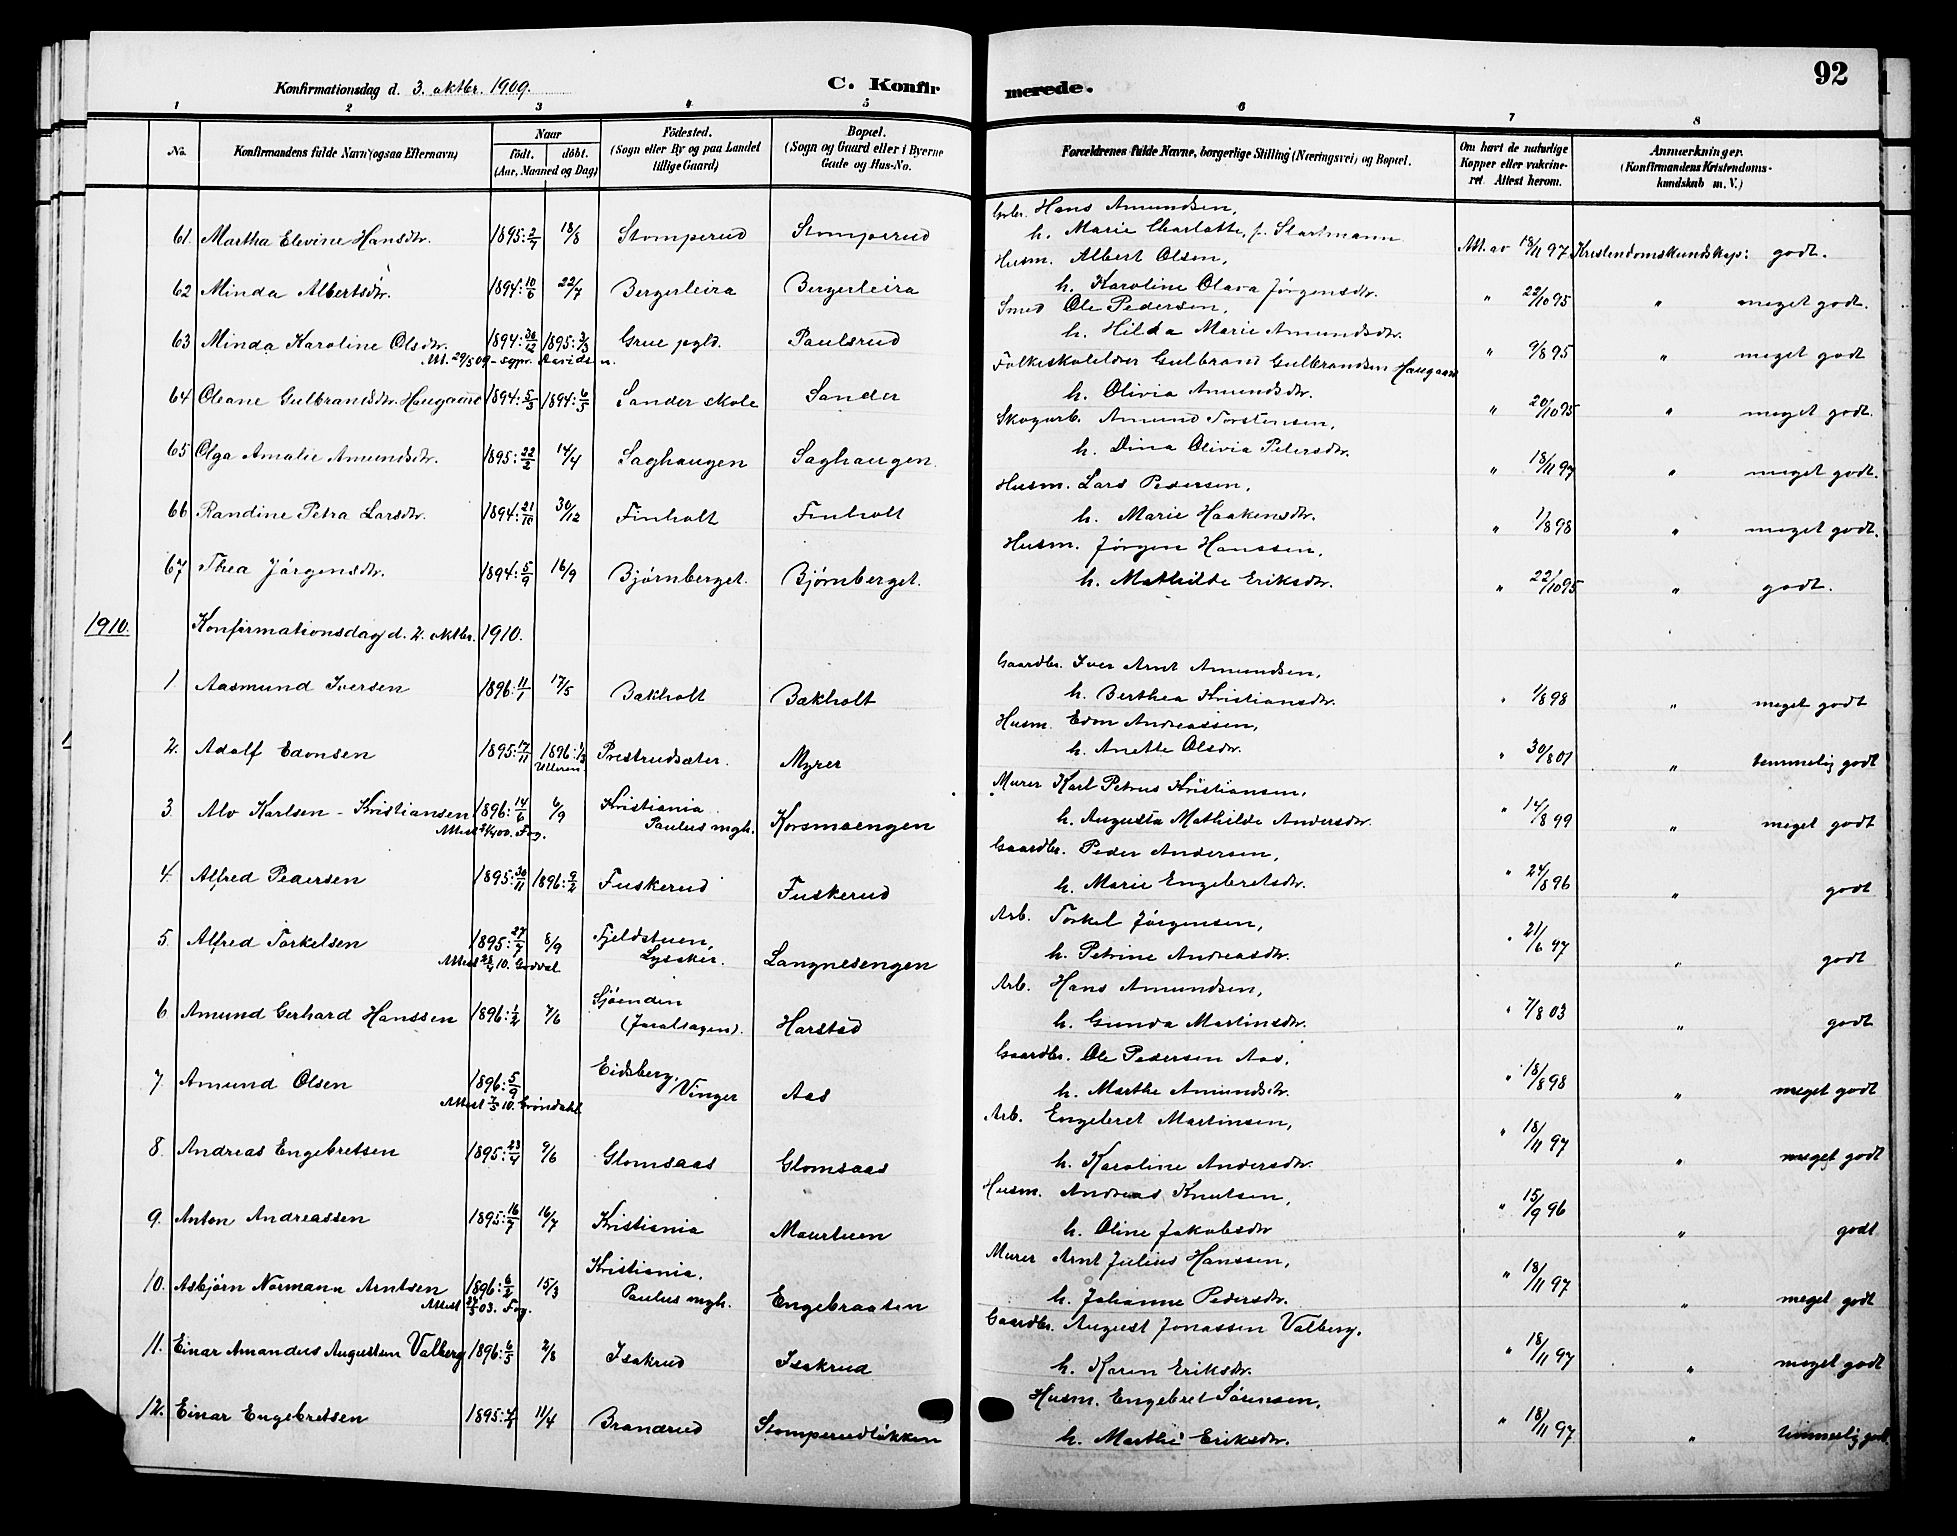 92
Konfirmationsdag d. 3. oktbr. 1909.
C. Konfirmerede.
1 2 3 4 5 6 7 8
No.
Konfirmandens fulde Navn (ogsaa Efternavn)
Naar
födt. döbt.
(Aar, Maaned og Dag)
Födested.
(Sogn eller By og paa Landet
tillige Gaard)
Bopæl.
(Sogn og Gaard eller i Byerne
Gade og Hus-No.
Forældrenes fulde Navne, borgerlige Stilling (Næringsvei) og Bopæl.
Om havt de naturlige
Kopper eller vakcine-
ret. Attest herom.
Anmærkninger.
(Konfirmandens Kristendoms-
kundskab m. V.)
61. Martha Elevine Hansdtr. 1895: 2/7 18/8 Stomperud Stomperud Gbr. Hans Amundsen,
h. Marie Charlotte, f. Startmann Att. av 18/11 97 Kristendomskundskap: godt.
62 Minda Albertsdtr. 1894: 10/6 22/7 Bergerleira Bergerleira Husm. Albert Olsen,
h. Karoline Olava Jörgensdtr. " 22/10 95 " meget godt.
63 Minda Karoline Olsdtr. 1894: 30/12 1895: 3/3 Grue pgld. Paulsrud Smed Ole Pedersen,
Att. 29/5 09 - sgpr. Davidsen.
h. Hilda Marie Amundsdtr. " 9/8 95 " meget godt
64 Oleane Gulbrandsdtr. Haugaard 1894: 5/3 1894: 6/5 Sander skole Sander Folkeskolelærer Gulbrand Gulbrandsen Haugaard
h. Olivia Amundsdtr. " 20/10 95 " meget godt.
65 Olga Amalie Amundsdtr. 1895: 22/2 14/4 Saghaugen Saghaugen Skogarb. Amund Torstensen,
h. Dina Olivia Petersdtr. " 18/11 97 " meget godt.
66 Randine Petra Larsdtr. 1894: 21/10 30/12 Finholt Finholt Husm. Lars Pedersen,
h. Marie Haakensdtr. " 1/8 98 " meget godt.
67 Thea Jörgensdtr. 1894: 5/9 16/9 Bjørnberget. Bjørnberget. Husm. Jørgen Hanssen,
h. Mathilde Eriksdtr. " 22/10 95 " godt.
1910. Konfirmationsdag d. 2. oktbr. 1910.
1. Aasmund Iversen 1896: 11/1 17/5 Bakholt Bakholt Gaardbr. Iver Arnt Amundsen,
h. Berthea Kristiansdtr. " 1/8 98 " meget godt
2. Adolf Edonsen 1895: 17/11 1896: 1/3 Prestrudsæter. Myrer Husm. Edon Andreassen,
Ulleren.
h. Anette Olsdtr. " 30/8 01 " temmelig godt
3. Alv Karlsen - Kristiansen 1896: 14/6 6/9 Kristiania Paulus mgh. Korsmoengen Murer Karl Petrus Kristiansen,
h. Augusta Mathilde Andersdtr. " 14/8 99 " meget godt
4. Alfred Pedersen 1895: 30/11 1896: 9/2 Fuskerud Fuskerud Gaardbr. Peder Andersen,
h. Marie Engebretsdtr. " 24/8 96 " godt
5. Alfred Torkelsen 1895: 27/7 8/9 Fjeldstuen, Lysaker. Langnesengen Arb. Torkel Jørgensen,
h. Petrine Andreasdtr. " 21/6 97 " godt
6 Amund Gerhard Hanssen 1896: 1/2 7/6 Sjöenden (Jaralsagen). Harstad Arb. Hans Amundsen,
h. Gunda Martinsdtr. " 7/8 03 " godt
7. Amund Olsen 1896: 5/9 Eidsberg, Vinger Aas Gaardbr. Ole Pedersen Aas,
Attest 7/5 10. Gröndahl
h. Marthe Amundsdtr. " 18/8 98 " meget godt
8. Andreas Engebretsen 1895: 23/4 9/6 Glomsaas Glomsaas Arb. Engebret Martinsen,
h. Karoline Andersdtr. " 18/11 97 " meget godt
9. Anton Andreassen 1895: 16/7 16/7 Kristiania Maurtuen Husm. Andreas Knutsen,
h. Oline Jakobsdtr " 15/9 96 " godt
10. Asbjörn Normann Arntsen 1896: 6/2 15/3 Kristiania. Paulus mgh. Engebraaten Murer Arnt Julius Hanssen,
h. Johanne Pedersdtr. " 18/11 97 " meget godt
11. Einar Amandus Augustsen Valberg 1896: 6/5 2/8 Isakrud Isakrud Gaardbr. August Jonassen Valberg,
h. Karen Eriksdtr. " 18/11 97 " meget godt
12. Einar Engebretsen 1895: 11/4 Branderud Stomperudlökken Husm. Engebret Sörensen,
h. Marthe Eriksdtr. " 18/11 97 " temmelig godt